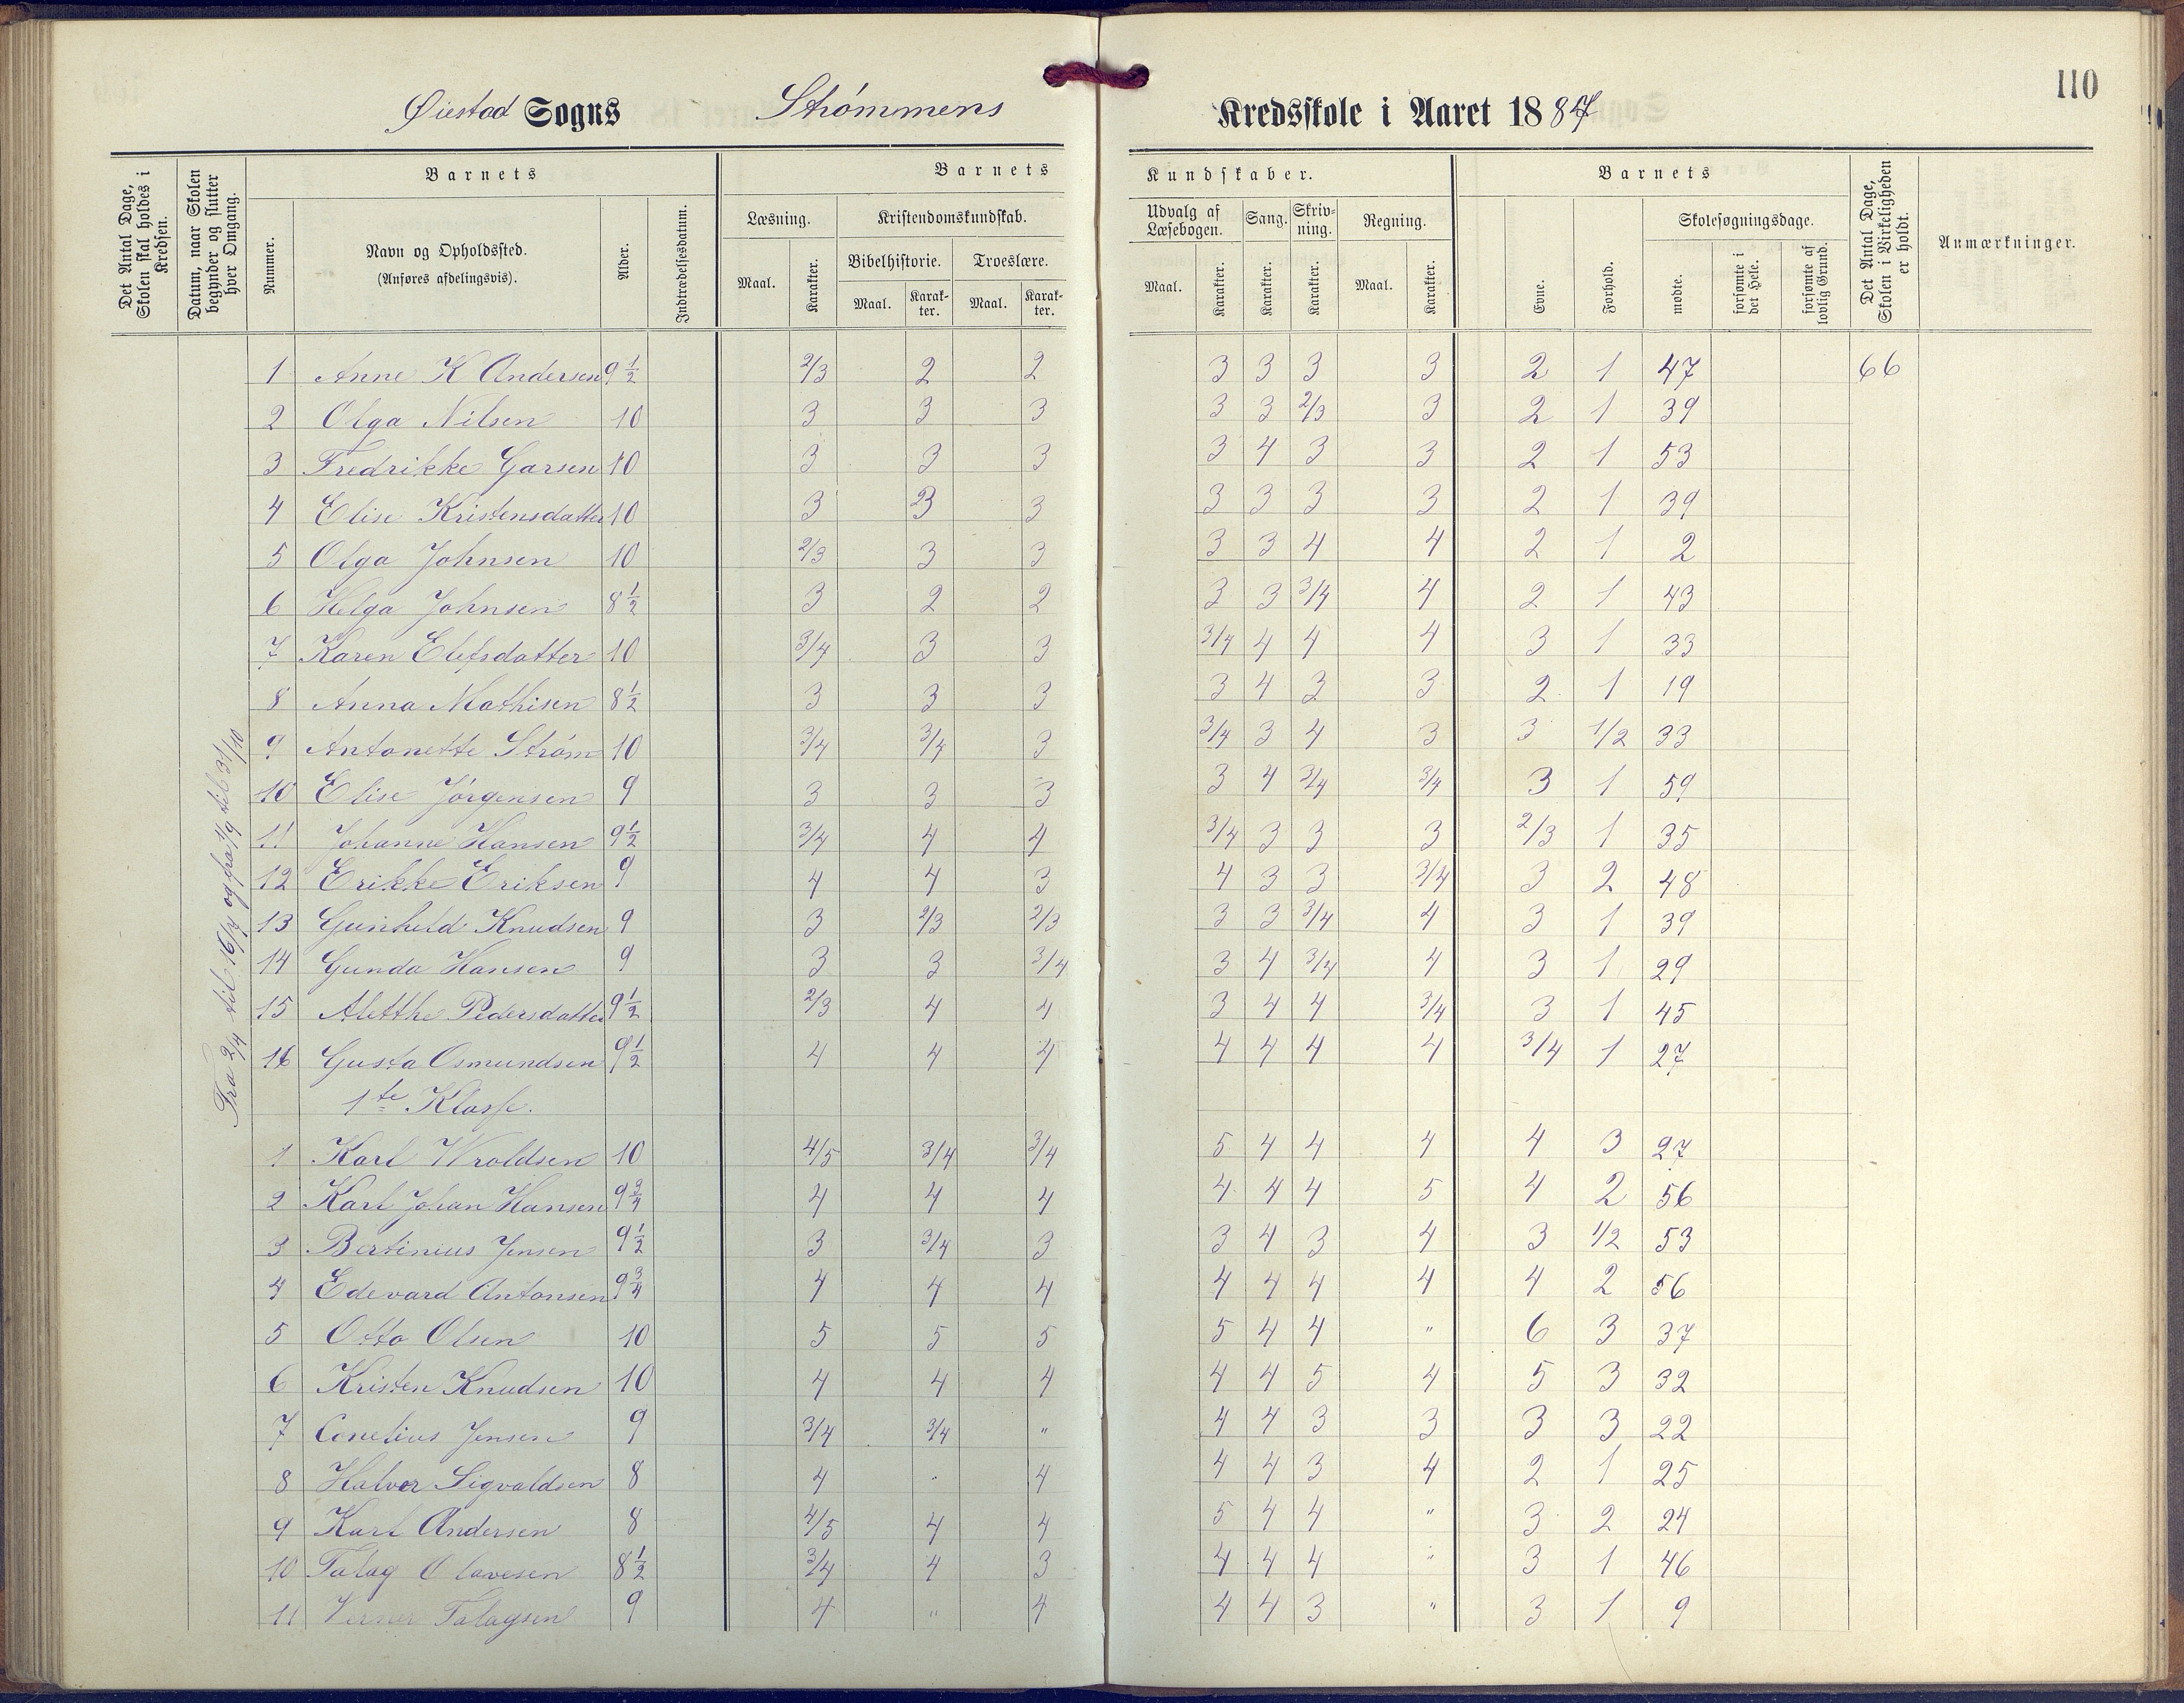 110
Øiestad Sogns Strømmens Kredsskole i Aaret 1887
Det Antal Dage, Skolen skal holdes i Kredsen.
Datum, naar Skolen begynder og slutter hver Omgang.
Barnets
Nummer.
Navn og Opholdssted. (Anføres afdelingsvis).
Alder.
Indtrædelsesdatum.
Barnets Kundskaber.
Læsning. Maal. Karakter.
Kristendomskundskab.
Bibelhistorie. Maal. Karakter.
Troeslære. Maal. Karakter.
Udvalg af Læsebogen. Maal. Karakter.
Sang. Karakter.
Skrivning. Karakter.
Regning. Maal. Karakter.
Barnets
Evne.
Forhold.
Skolesøgningsdage.
mødte.
forsømte i det Hele.
forsømte af lovlig Grund.
Det Antal Dage, Skolen i Virkeligheden er holdt.
Anmærkninger.
Fra 2/4 til 16/4 og fra 1/9 til 31/10
1 Anne K Andersen 9 1/2 2/3 2 2 3 3 3 3 2 1 47 66
2 Olga Nilsen 10 3 3 3 3 3 2/3 3 2 1 39
3 Fredrikke Garsen 10 3 3 3 3 4 3 3 2 1 53
4 Elise Kristensdatter 10 3 3 3 3 3 3 3 2 1 39
5 Olga Johnsen 10 2/3 3 3 3 3 4 4 2 1 2
6 Helga Johnsen 8 1/2 3 2 2 3 3 3/4 4 2 1 43
7 Karen Elefsdatter 10 3/4 3 3 3/4 4 4 4 3 1 33
8 Anna Mathisen 8 1/2 3 3 3 3 4 3 3 2 1 19
9 Antonette Strøm 10 3/4 3/4 3 3/4 3 4 3 3 1/2 33
10 Elise Jørgensen 9 3 3 3 3 4 3/4 3/4 3 1 59
11 Johanne Hansen 9 1/2 3/4 4 4 3/4 3 3 3 2/3 1 35
12 Erikke Eriksen 9 4 4 3 4 3 3 3/4 3 2 48
13 Gunhild Knudsen 9 3 2/3 2/3 3 3 3/4 4 3 1 39
14 Gunda Hansen 9 3 3 3/4 3 4 3/4 4 3 1 29
15 Aletthe Pedersdatter 9 1/2 2/3 4 4 3 4 4 3/4 3 1 45
16 Gusta Osmundsen 9 1/2 4 4 4 4 4 4 4 3/4 1 27
1te Klasse.
1 Karl Wroldsen 10 4/5 3/4 3/4 5 4 4 4 4 3 27
2 Karl Johan Hansen 9 3/4 4 4 4 4 4 4 5 4 2 56
3 Bertinius Jensen 9 1/2 3 3/4 3 3 4 3 4 3 1/2 53
4 Edevard Antonsen 9 3/4 4 4 4 4 4 4 4 4 2 56
5 Otto Olsen 10 5 5 5 5 4 4 " 6 3 37
6 Kristen Knudsen 10 4 4 4 4 4 5 4 5 3 32
7 Conelius Jensen 9 3/4 3/4 " 4 4 3 3 3 3 22
8 Halvor Sigvaldsen 8 4 " 4 4 4 3 4 2 1 25
9 Karl Andersen 8 4/5 4 4 5 4 4 " 3 2 24
10 Talag Olavesen 8 1/2 3/4 4 3 4 4 4 " 3 1 46
11 Verner Talagsen 9 4 " 4 4 4 3 " 3 1 9